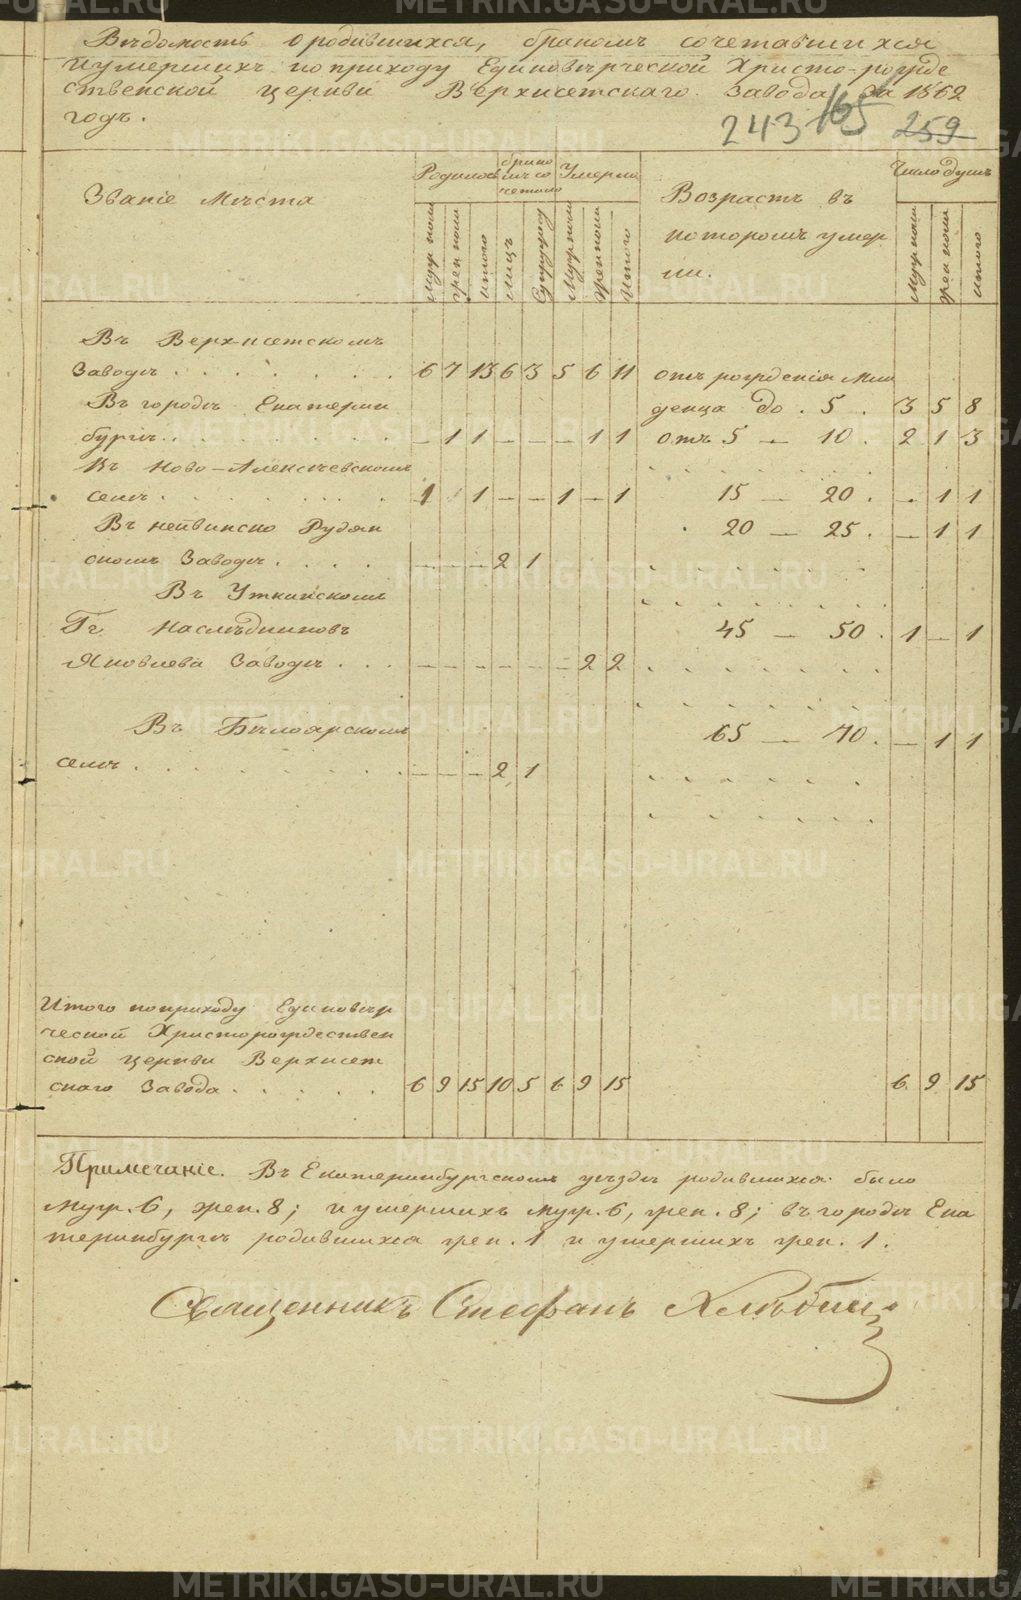 Вѣдомость о родившихся, бракомъ сочетавшихся
и умершихъ по приходу Единовѣрческой Христо-рожде
ственской церкви Верхисетскаго Завода за 1862
годъ.
243 165 259
Званіе Мѣста
Родилось
брако
мъ со
четало
Умерло
Возрастъ въ
которомъ умер
ли.
Число душъ
Муж пола
жен пола
итого
Лицъ
Супруж
Муж пола
жен пола
Итого
Муж пола
жен пола
итого
Въ Верхисетскомъ
Заводѣ . . . . . . . 6 7 13 6 3 5 6 11 отъ рожденія мла
денца до . 5 . 3 5 8
Въ городѣ Екатерин
бургѣ . . . . . . . — 1 1 — — — 1 1 отъ 5 — 10 . 2 1 3
Въ Ново-Алексѣевскомъ
селѣ . . . . . . . 1 1 — — 1 — 1 15 — 20 . — 1 1
Въ Нейвинско Рудян
скомъ Заводѣ . . . . — — — 2 1
20 — 25 . — 1 1
Въ Уткинскомъ
Гг. Наслѣдниковъ
45 — 50 . 1 — 1
Яковлева Заводѣ . . . — — — — — — 2 2
Въ Бѣлоярскомъ
65 — 70 . — 1 1
селѣ . . . . . . . — — — 2 1
Итого по приходу Единовѣр
ческой Христорождествен
ской церкви Верхисет
скаго Завода . . . . . 6 9 15 10 5 6 9 15 6 9 15
Примѣчаніе. Въ Екатеринбургскомъ уѣздѣ родившихся было
муж. 6, жен. 8; и умершихъ муж. 6, жен. 8; въ городѣ Ека
теринбургѣ родившихся жен. 1 и умершихъ жен. 1.
Священникъ Стефанъ Хлѣбин
METRIKI.GASO-URAL.RU